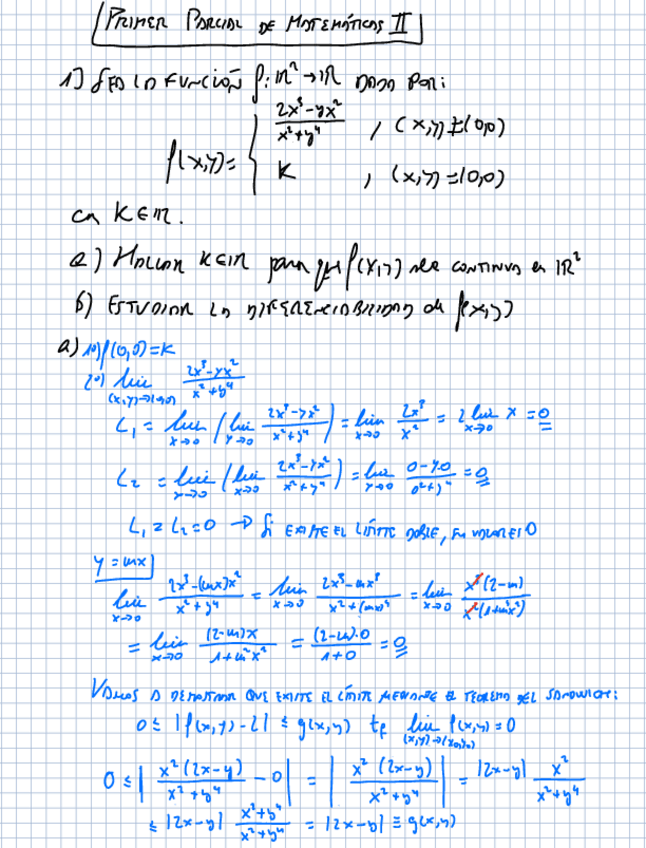 PRIMER PARCIAL DE MATEMÁTICAS II
1) SEA LA FUNCIÓN f: ℝ² → ℝ DADA POR:
f(x,y) = { (2x³-yx²)/(x²+y⁴) , (x,y) ≠ (0,0)
K , (x,y) = (0,0)
con K ∈ ℝ.
a) HALLAR K ∈ ℝ para que f(x,y) sea CONTINUA en ℝ²
b) ESTUDIAR LA DIFERENCIABILIDAD de f(x,y)
a) 1º) f(0,0) = K
2º) lim (x,y)→(0,0) (2x³-yx²)/(x²+y⁴)
L₁ = lim x→0 (lim y→0 (2x³-yx²)/(x²+y⁴)) = lim x→0 2x³/x² = 2 lim x→0 x = 0
L₂ = lim y→0 (lim x→0 (2x³-yx²)/(x²+y⁴)) = lim y→0 (0-y·0)/(0²+y⁴) = 0
L₁ = L₂ = 0 → Si EXISTE EL LÍMITE DOBLE, su VALOR ES 0
y = mx
lim x→0 (2x³-(mx)x²)/(x²+y⁴) = lim x→0 (2x³-mx³)/(x²+(mx)⁴) = lim x→0 x³(2-m)/(x²(1+m⁴x²))
= lim x→0 (2-m)x/(1+m⁴x²) = (2-m)·0/(1+0) = 0
VAMOS A DEMOSTRAR QUE EXISTE EL LÍMITE MEDIANTE EL TEOREMA DEL SANDWICH:
0 ≤ |f(x,y)-L| ≤ g(x,y) tq lim (x,y)→(x₀,y₀) f(x,y) = 0
0 ≤ |x²(2x-y)/(x²+y⁴) - 0| = |x²(2x-y)/(x²+y⁴)| = |2x-y| x²/(x²+y⁴)
≤ |2x-y| (x²+y⁴)/(x²+y⁴) = |2x-y| ≡ g(x,y)